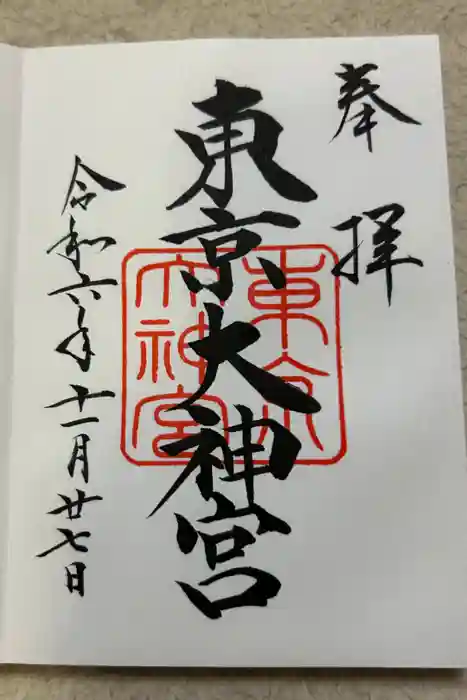 奉拝
東京大神宮
東京
大神宮
令和六年十一月廿七日